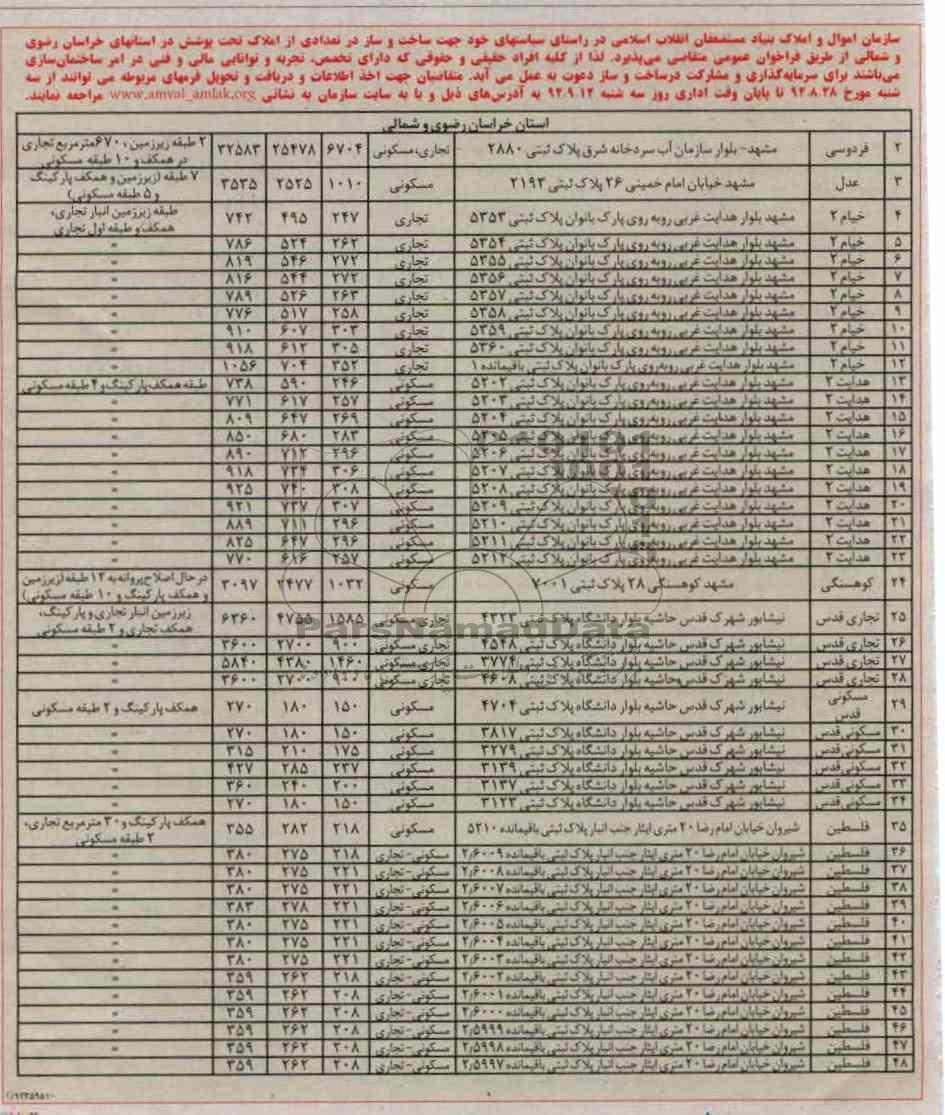 سازمان اموال و املاک بنیاد مستضعفان انقلاب اسلامی در راستای سیاستهای خود جهت ساخت و ساز در تعدادی از املاک تحت پوشش در استانهای خراسان رضوی
و شمالی از طریق فراخوان عمومی متقاضی می‌پذیرد. لذا از کلیه افراد حقیقی و حقوقی که دارای تخصص، تجربه و توانایی مالی و فنی در امر ساختمان‌سازی
می‌باشند برای سرمایه‌گذاری و مشارکت درساخت و ساز دعوت به عمل می آید. متقاضیان جهت اخذ اطلاعات و دریافت و تحویل فرمهای مربوطه می توانند از سه
شنبه مورخ ۹۲.۸.۲۸ تا پایان وقت اداری روز سه شنبه ۹۲.۹.۱۲ به آدرس‌های ذیل و یا به سایت سازمان به نشانی www.amval_amlak.org مراجعه نمایند.
استان خراسان رضوی و شمالی
۲ فردوسی مشهد- بلوار سازمان آب سردخانه شرق پلاک ثبتی ۲۸۸۰ تجاری، مسکونی ۶۷۰۴ ۲۵۴۷۸ ۳۲۵۸۳ ۲ طبقه زیرزمین ، ۶۷۰مترمربع تجاری در همکف و ۱۰ طبقه مسکونی
۳ عدل مشهد خیابان امام خمینی ۲۶ پلاک ثبتی ۲۱۹۳ مسکونی ۱۰۱۰ ۲۵۲۵ ۳۵۳۵ ۷ طبقه (زیرزمین و همکف پارکینگ و ۵ طبقه مسکونی)
۴ خیام ۲ مشهد بلوار هدایت غربی روبه روی پارک بانوان پلاک ثبتی ۵۳۵۳ تجاری ۲۴۷ ۴۹۵ ۷۴۲ طبقه زیرزمین انبار تجاری، همکف و طبقه اول تجاری
۵ خیام ۲ مشهد بلوار هدایت غربی روبه روی پارک بانوان پلاک ثبتی ۵۳۵۴ تجاری ۲۶۲ ۵۲۴ ۷۸۶ "
۶ خیام ۲ مشهد بلوار هدایت غربی روبه روی پارک بانوان پلاک ثبتی ۵۳۵۵ تجاری ۲۷۲ ۵۴۶ ۸۱۹ "
۷ خیام ۲ مشهد بلوار هدایت غربی روبه روی پارک بانوان پلاک ثبتی ۵۳۵۶ تجاری ۲۷۲ ۵۴۴ ۸۱۶ "
۸ خیام ۲ مشهد بلوار هدایت غربی روبه روی پارک بانوان پلاک ثبتی ۵۳۵۷ تجاری ۲۶۳ ۵۲۶ ۷۸۹ "
۹ خیام ۲ مشهد بلوار هدایت غربی روبه روی پارک بانوان پلاک ثبتی ۵۳۵۸ تجاری ۲۵۸ ۵۱۷ ۷۷۶ "
۱۰ خیام ۲ مشهد بلوار هدایت غربی روبه روی پارک بانوان پلاک ثبتی ۵۳۵۹ تجاری ۳۰۳ ۶۰۷ ۹۱۰ "
۱۱ خیام ۲ مشهد بلوار هدایت غربی روبه روی پارک بانوان پلاک ثبتی ۵۳۶۰ تجاری ۳۰۵ ۶۱۲ ۹۱۸ "
۱۲ خیام ۲ مشهد بلوار هدایت غربی روبه روی پارک بانوان پلاک ثبتی باقیمانده ۱ تجاری ۳۵۲ ۷۰۴ ۱۰۵۶ "
۱۳ هدایت ۲ مشهد بلوار هدایت غربی روبه روی پارک بانوان پلاک ثبتی ۵۲۰۲ مسکونی ۲۴۶ ۵۹۰ ۷۳۸ طبقه همکف پارکینگ و ۴ طبقه مسکونی
۱۴ هدایت ۲ مشهد بلوار هدایت غربی روبه روی پارک بانوان پلاک ثبتی ۵۲۰۳ مسکونی ۲۵۷ ۶۱۷ ۷۷۱ "
۱۵ هدایت ۲ مشهد بلوار هدایت غربی روبه روی پارک بانوان پلاک ثبتی ۵۲۰۴ مسکونی ۲۶۹ ۶۴۷ ۸۰۹ "
۱۶ هدایت ۲ مشهد بلوار هدایت غربی روبه روی پارک بانوان پلاک ثبتی ۵۲۰۵ مسکونی ۲۸۳ ۶۸۰ ۸۵۰ "
۱۷ هدایت ۲ مشهد بلوار هدایت غربی روبه روی پارک بانوان پلاک ثبتی ۵۲۰۶ مسکونی ۲۹۶ ۷۱۲ ۸۹۰ "
۱۸ هدایت ۲ مشهد بلوار هدایت غربی روبه روی پارک بانوان پلاک ثبتی ۵۲۰۷ مسکونی ۳۰۶ ۷۳۴ ۹۱۸ "
۱۹ هدایت ۲ مشهد بلوار هدایت غربی روبه روی پارک بانوان پلاک ثبتی ۵۲۰۸ مسکونی ۳۰۸ ۷۴۰ ۹۲۵ "
۲۰ هدایت ۲ مشهد بلوار هدایت غربی روبه روی پارک بانوان پلاک ثبتی ۵۲۰۹ مسکونی ۳۰۷ ۷۳۷ ۹۲۱ "
۲۱ هدایت ۲ مشهد بلوار هدایت غربی روبه روی پارک بانوان پلاک ثبتی ۵۲۱۰ مسکونی ۲۹۶ ۷۱۱ ۸۸۹ "
۲۲ هدایت ۲ مشهد بلوار هدایت غربی روبه روی پارک بانوان پلاک ثبتی ۵۲۱۱ مسکونی ۲۹۶ ۶۴۷ ۸۲۵ "
۲۳ هدایت ۲ مشهد بلوار هدایت غربی روبه روی پارک بانوان پلاک ثبتی ۵۲۱۲ مسکونی ۲۵۷ ۶۱۶ ۷۷۰ "
۲۴ کوهسنگی مشهد کوهسنگی ۲۸ پلاک ثبتی ۷۰۰۱ مسکونی ۱۰۳۲ ۲۴۷۷ ۳۰۹۷ در حال اصلاح پروانه به ۱۲ طبقه (زیرزمین و همکف پارکینگ و ۱۰ طبقه مسکونی)
۲۵ تجاری قدس نیشابور شهرک قدس حاشیه بلوار دانشگاه پلاک ثبتی تجاری مسکونی ۱۵۸۵ ۴۷۵۵ ۶۳۶۰ زیرزمین انبار تجاری و پارکینگ، همکف تجاری و ۲ طبقه مسکونی
۲۶ تجاری قدس نیشابور شهرک قدس حاشیه بلوار دانشگاه پلاک ثبتی ۴۵۴۸ تجاری مسکونی ۹۰۰ ۲۷۰۰ ۳۶۰۰ "
۲۷ تجاری قدس نیشابور شهرک قدس حاشیه بلوار دانشگاه پلاک ثبتی ۳۷۷۴ تجاری مسکونی ۱۴۶۰ ۴۳۸۰ ۵۸۴۰ "
۲۸ تجاری قدس نیشابور شهرک قدس حاشیه بلوار دانشگاه پلاک ثبتی ۴۶۰۸ تجاری مسکونی ۹۰۰ ۲۷۰۰ ۳۶۰۰ "
۲۹ مسکونی قدس نیشابور شهرک قدس حاشیه بلوار دانشگاه پلاک ثبتی ۴۷۰۴ مسکونی ۱۵۰ ۱۸۰ ۲۷۰ همکف پارکینگ و ۲ طبقه مسکونی
۳۰ مسکونی قدس نیشابور شهرک قدس حاشیه بلوار دانشگاه پلاک ثبتی ۳۸۱۷ مسکونی ۱۵۰ ۱۸۰ ۲۷۰ "
۳۱ مسکونی قدس نیشابور شهرک قدس حاشیه بلوار دانشگاه پلاک ثبتی ۳۲۷۹ مسکونی ۱۷۵ ۲۱۰ ۳۱۵ "
۳۲ مسکونی قدس نیشابور شهرک قدس حاشیه بلوار دانشگاه پلاک ثبتی ۳۱۳۹ مسکونی ۲۳۷ ۲۸۵ ۴۲۷ "
۳۳ مسکونی قدس نیشابور شهرک قدس حاشیه بلوار دانشگاه پلاک ثبتی ۳۱۳۷ مسکونی ۲۰۰ ۲۴۰ ۳۶۰ "
۳۴ مسکونی قدس نیشابور شهرک قدس حاشیه بلوار دانشگاه پلاک ثبتی ۳۱۲۳ مسکونی ۱۵۰ ۱۸۰ ۲۷۰ "
۳۵ فلسطین شیروان خیابان امام رضا ۲۰ متری ایثار جنب انبار پلاک ثبتی باقیمانده ۵۲۱۰ مسکونی ۲۱۸ ۲۸۲ ۳۵۵ همکف پارکینگ و ۳۰ مترمربع تجاری، ۲ طبقه مسکونی
۳۶ فلسطین شیروان خیابان امام رضا ۲۰ متری ایثار جنب انبار پلاک ثبتی باقیمانده ۲٫۶۰۰۹ مسکونی-تجاری ۲۱۸ ۲۷۵ ۳۸۰ "
۳۷ فلسطین شیروان خیابان امام رضا ۲۰ متری ایثار جنب انبار پلاک ثبتی باقیمانده ۲٫۶۰۰۸ مسکونی-تجاری ۲۲۱ ۲۷۵ ۳۸۰ "
۳۸ فلسطین شیروان خیابان امام رضا ۲۰ متری ایثار جنب انبار پلاک ثبتی باقیمانده ۲٫۶۰۰۷ مسکونی-تجاری ۲۲۱ ۲۷۵ ۳۸۰ "
۳۹ فلسطین شیروان خیابان امام رضا ۲۰ متری ایثار جنب انبار پلاک ثبتی باقیمانده ۲٫۶۰۰۶ مسکونی-تجاری ۲۲۱ ۲۷۸ ۳۸۳ "
۴۰ فلسطین شیروان خیابان امام رضا ۲۰ متری ایثار جنب انبار پلاک ثبتی باقیمانده ۲٫۶۰۰۵ مسکونی-تجاری ۲۲۱ ۲۷۵ ۳۸۰ "
۴۱ فلسطین شیروان خیابان امام رضا ۲۰ متری ایثار جنب انبار پلاک ثبتی باقیمانده ۲٫۶۰۰۴ مسکونی-تجاری ۲۲۱ ۲۷۵ ۳۸۰ "
۴۲ فلسطین شیروان خیابان امام رضا ۲۰ متری ایثار جنب انبار پلاک ثبتی باقیمانده ۲٫۶۰۰۳ مسکونی-تجاری ۲۲۱ ۲۷۵ ۳۸۰ "
۴۳ فلسطین شیروان خیابان امام رضا ۲۰ متری ایثار جنب انبار پلاک ثبتی باقیمانده ۲٫۶۰۰۲ مسکونی-تجاری ۲۱۸ ۲۶۲ ۳۵۹ "
۴۴ فلسطین شیروان خیابان امام رضا ۲۰ متری ایثار جنب انبار پلاک ثبتی باقیمانده ۲٫۶۰۰۱ مسکونی-تجاری ۲۰۸ ۲۶۲ ۳۵۹ "
۴۵ فلسطین شیروان خیابان امام رضا ۲۰ متری ایثار جنب انبار پلاک ثبتی باقیمانده ۲٫۶۰۰۰ مسکونی-تجاری ۲۰۸ ۲۶۲ ۳۵۹ "
۴۶ فلسطین شیروان خیابان امام رضا ۲۰ متری ایثار جنب انبار پلاک ثبتی باقیمانده ۲٫۵۹۹۹ مسکونی-تجاری ۲۰۸ ۲۶۲ ۳۵۹ "
۴۷ فلسطین شیروان خیابان امام رضا ۲۰ متری ایثار جنب انبار پلاک ثبتی باقیمانده ۲٫۵۹۹۸ مسکونی-تجاری ۲۰۸ ۲۶۲ ۳۵۹ "
۴۸ فلسطین شیروان خیابان امام رضا ۲۰ متری ایثار جنب انبار پلاک ثبتی باقیمانده ۲٫۵۹۹۷ مسکونی-تجاری ۲۰۸ ۲۶۲ ۳۵۹
ParsNamadData